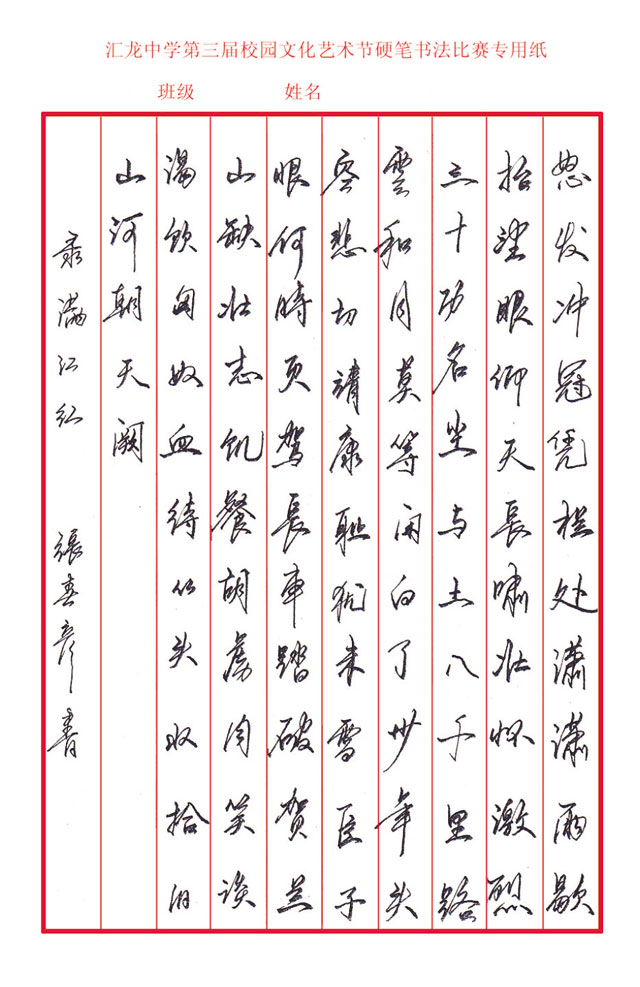 汇龙中学第三届校园文化艺术节硬笔书法比赛专用纸
班级 姓名
怒发冲冠凭栏处潇潇雨歇
抬望眼仰天長啸壮怀激烈
三十功名尘与土八千里路
雲和月莫等闲白了少年头
空悲切靖康耻犹未雪臣子
眼何時页驾長車踏破贺兰
山缺壮志饥餐胡虏肉笑谈
渴饮匈奴血待从头收拾旧
山河朝天阙
录满江红 張春彦書